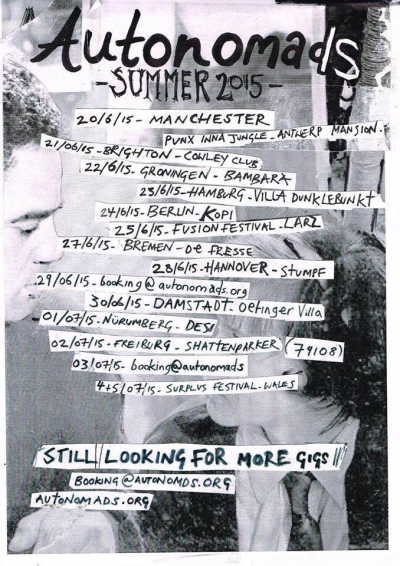 Autonomads
-SUMMER 2015-
20/6/15 - MANCHESTER
PUNX INNA JUNGLE - ANTWERP MANSION.
21/06/15 - BRIGHTON - COWLEY CLUB
22/6/15 - GRONINGEN - BAMBARA
23/6/15 - HAMBURG - VILLA DUNKLEBUNKT
24/6/15 - BERLIN - KOPI
25/6/15 - FUSION FESTIVAL - LARZ
27/6/15 - BREMEN - De FRESSE
28/6/15 - HANNOVER - STUMPF
29/06/15 - booking@autonomads.org
30/06/15 - DAMSTADT - Oetinger Villa
01/07/15 - NÜRUMBERG - DESI
02/07/15 - FREIBURG - SHATTENPARKER (79108)
03/07/15 - booking@autonomads
4+5/07/15 - SURPLUS FESTIVAL - WALES
STILL LOOKING FOR MORE GIGS!!
BOOKING@AUTONOMDS.ORG
AUTONOMADS.ORG